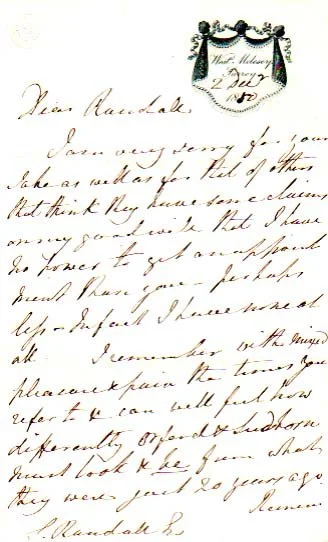 West Molesey
Surrey
2 Decr
1850
Dear Randall
I am very sorry for your
sake as well as for that of others
that think they have some claims
on my good will that I have
no power to get an appoint
ment than you - perhaps
less - In fact I have none at
all. I remember with mixed
pleasure & pain the times you
refer to & can well feel how
differently Orford & Sudborn
must look & be from what
they were just 20 years ago
S. Randall Es